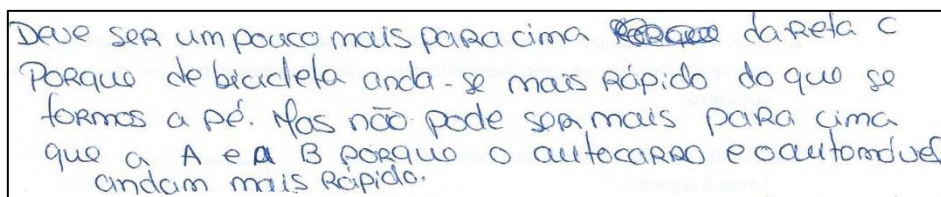 Deve ser um pouco mais para cima da reta C
porque de bicicleta anda-se mais rápido do que se
formos a pé. Mas não pode ser mais para cima
que a A e a B porque o autocarro e o automóvel
andam mais rápido.